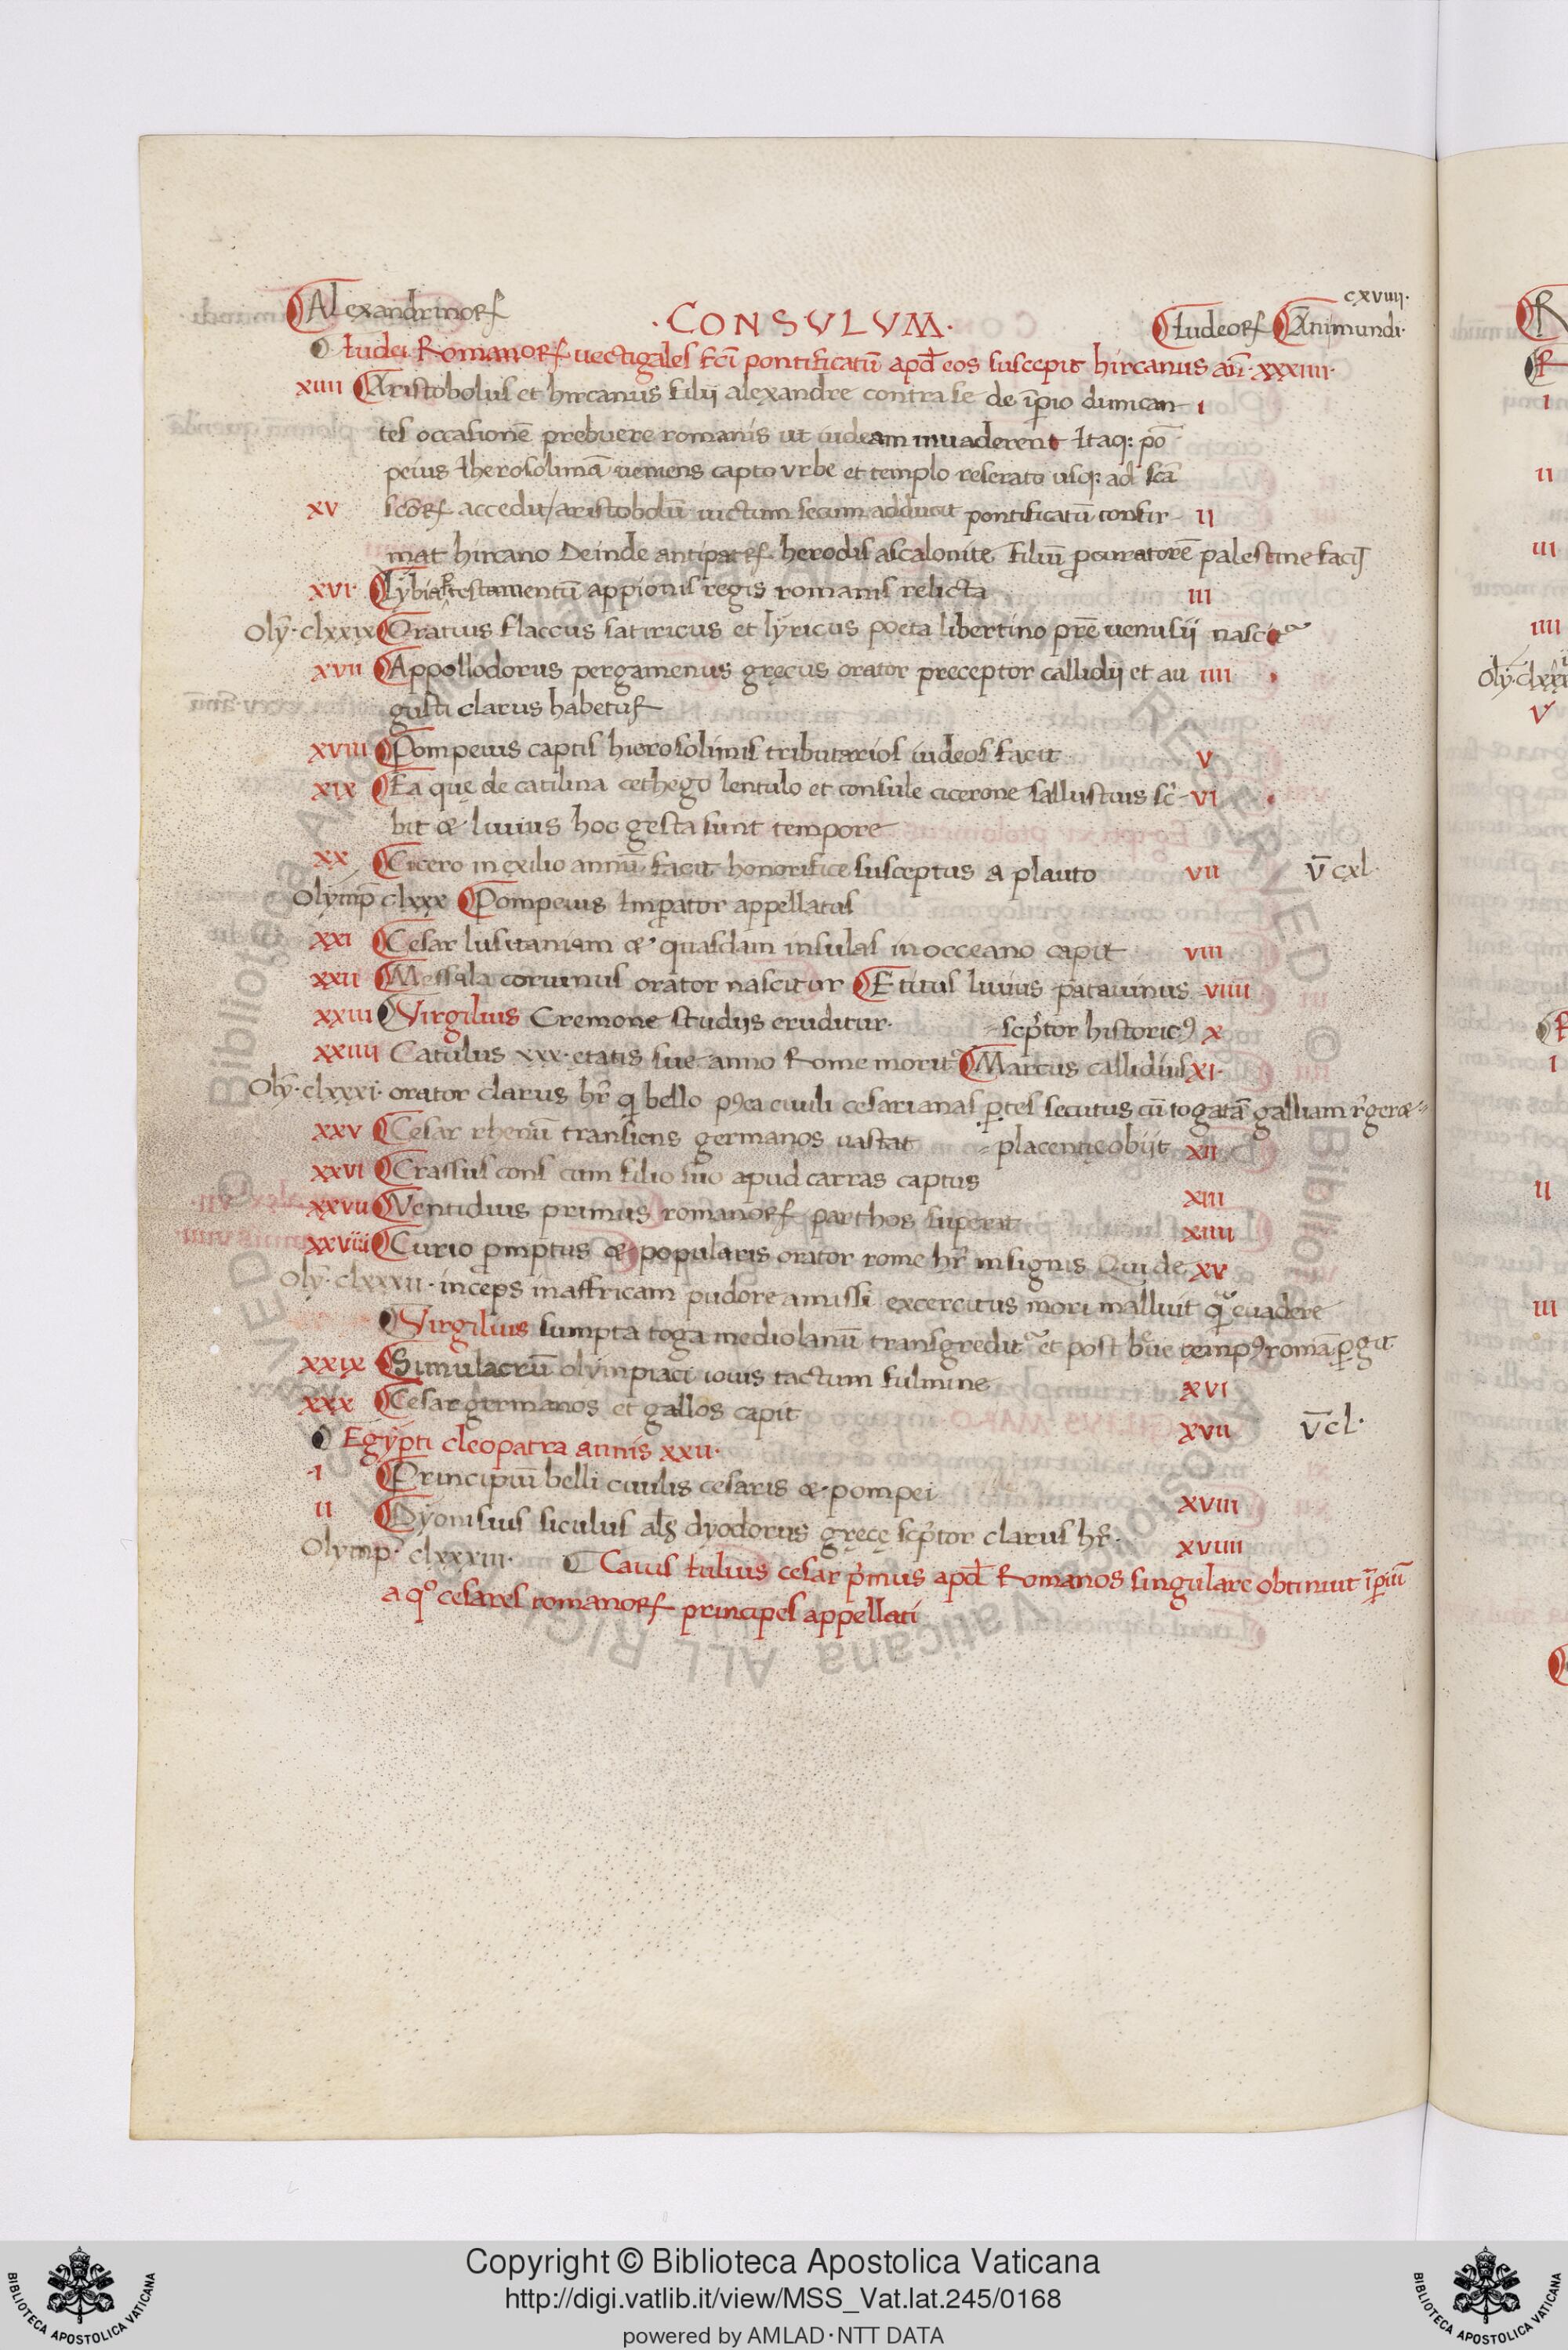 cxviiii·
Alexandrinorꝝ ·CONSVLVM· Iudeorꝝ An̄i mundi·
Iudei Romanorꝝ uectigales fc̄i pontificatū apđ eos suscepit hircanus an̄· xxxiiii·
xiiii Aristobolus et hircanus filij alexandre contra se de īperio dimican- i
tes occasionē prebuere romanis ut iudeam inuaderent Itaq: pō
peius Iherosolimā ueniens capto vrbe et templo reserato usq: ad scā
xv scōrꝝ accedit/aristobolū uictum secum adducit pontificatū confir- ii
mat hircano Deinde antipatrꝝ herodis ascalonite filiū ꝓcuratorē palestine facit
xvi· Lybia testamentū appionis regis romanis relicta iii
Oly̅· clxxix Oratius flaccus satiricus et lyricus poeta libertino prē uenusij nascit᷑
xvii Appollodorus pergamenus gręcus orator preceptor callidij et au iiii
gusti clarus habetur
xviii Pompeius captis hierosolimis tributarios iudeos facit v
xix Ea quę de catilina cethego lentulo et consule cicerone sallustius sc̓- vi
bit & liuius hoc gesta sunt tempore
xx Cicero in exilio annū facit honorifice susceptus a plauto vii v̅cxl·
Olymp̄ clxxx Pompeius Imꝑator appellatus
xxi Cesar lusitaniam & quasdam insulas in occeano capit viii
xxii Messala coruinus orator nascitur Etitus liuius patauinus viiii
xxiii Virgilius Cremone studijs eruditur· =scp̓tor historicꝰ x
xxiiii Catulus xxx·etatis sue anno Rome morit᷑ Marcus callidius xi·
Oly̅·clxxxi· orator clarus hr̄ q bello pꝰea ciuili cesarianas ꝑtes secutus cū togatā galliam r̓ger&=
xxv Cesar rhenū transiens germanos uastat =placentię obijt xii
xxvi Crassus cons cum filio suo apud carras captus
xxvii Ventidius primus romanorꝝ parthos superat xiii
xxviii Curio promptus & popularis orator rome hr̄ insignis Qui de xiiii xv
Oly̅·clxxxii· inceps in affricam pudore amissi excercitus mori malluit qͣ euadere
Virgilius sumpta toga mediolanū transgredit᷑ et post bͤue tempꝰ romā ꝑgit
xxix Simulacrū olimpiaci iouis tactum fulmine xvi
xxx Cesar germanos et gallos capit xvii v̅cl·
Egypti cleopatra annis xxii·
i Principiū belli ciuilis cesaris & pompei xviii
ii Dyonisius siculus als̄ dyodorus gręcę scp̓tor clarus hr̄· xviiii
Olymp̄ clxxxiii· Caius Iulius cesar p̓mus apđ Romanos singulare obtinuit īꝑiū
a qͦ cesares romanorꝝ principes appellati
Copyright © Biblioteca Apostolica Vaticana
http://digi.vatlib.it/view/MSS_Vat.lat.245/0168
powered by AMLAD·NTT DATA